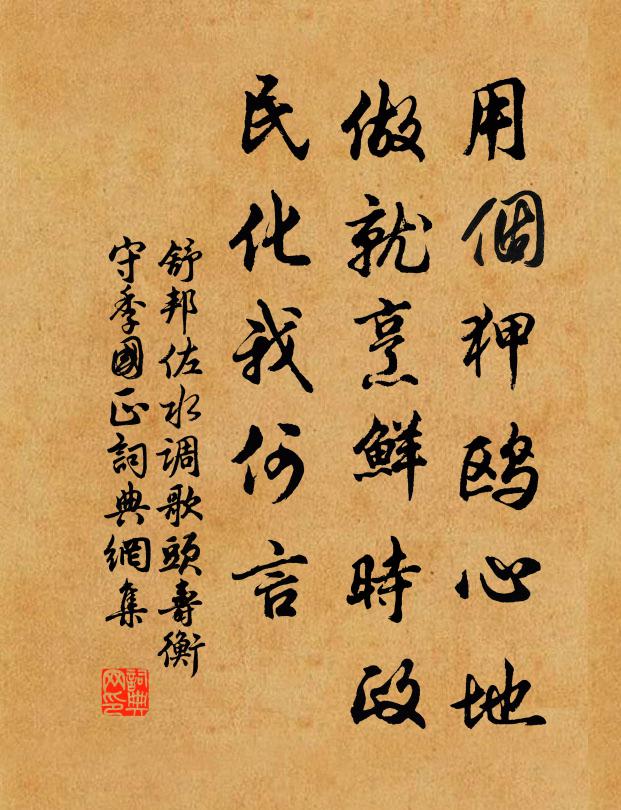 用個狎鸥心地
做就烹鮮時政
民化我何言
舒邦佐水调歌頭壽衡
守季國正詞典網集
詞典网印